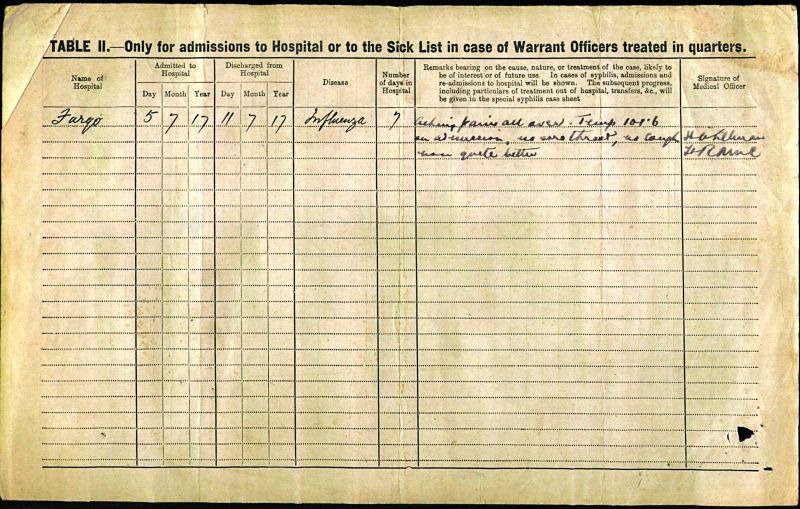 TABLE II.—Only for admissions to Hospital or to the Sick List in case of Warrant Officers treated in quarters.
Name of Hospital
Admitted to Hospital
Day Month Year
Discharged from Hospital
Day Month Year
Disease
Number of days in Hospital
Remarks bearing on the cause, nature, or treatment of the case, likely to
be of interest or of future use. In cases of syphilis, admissions and
re-admissions to hospital will be shown. The subsequent progress,
including particulars of treatment out of hospital, transfers, &c., will
be given in the special syphilis case sheet
Signature of Medical Officer
Fargo 5 7 17 11 7 17 Influenza 7 aching pains all over. Temp. 101.6
on admission, no sore throat, no cough
now quite better